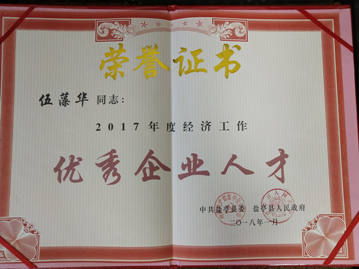 荣誉证书
伍藻华 同志：
2017年度经济工作
优秀企业人才
中共盐亭县委 盐亭县人民政府
二〇一八年一月